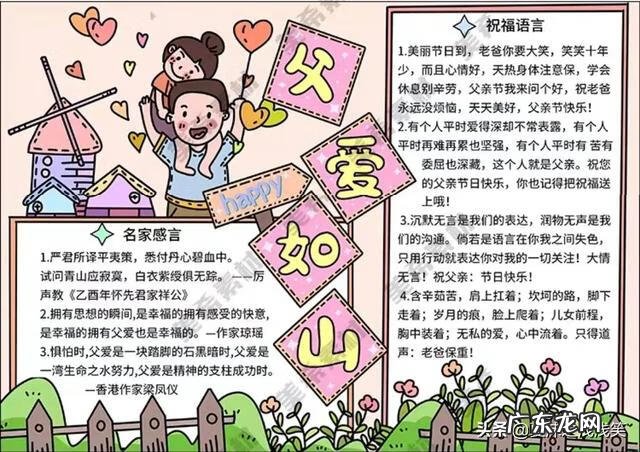 父
爱
如
山
happy
名家感言
1.严君所译平夷策，悉付丹心碧血中。
试问青山应寂寞，白衣紫绶俱无踪。 ——厉
声教《乙酉年怀先君家祥公》
2.拥有思想的瞬间,是幸福的拥有感受的快意,
是幸福的拥有父爱也是幸福的。—作家琼瑶
3.惧怕时,父爱是一块踏脚的石黑暗时,父爱是
一湾生命之水努力,父爱是精神的支柱成功时。
—香港作家梁凤仪
祝福语言
1.美丽节日到，老爸你要大笑，笑笑十年
少，而且心情好，天热身体注意保，学会
休息别辛劳，父亲节我来问个好，祝老爸
永远没烦恼，天天美好，父亲节快乐！
2.有个人平时爱得深却不常表露，有个人
平时再难再累也坚强，有个人平时有 苦有
委屈也深藏，这个人就是父亲。祝您
的父亲节日快乐，你也记得把祝福送
上哦！
3.沉默无言是我们的表达，润物无声是我们
的沟通。倘若是语言在你我之间失色，
只用行动就表达你对我的一切关注！大情
无言！祝父亲：节日快乐！
4.含辛茹苦，肩上扛着；坎坷的路，脚下
走着；岁月的痕，脸上爬着；儿女前程，
胸中装着；无私的爱，心中流着。只得道
声：老爸保重！
美希素材
头条
广东龙网